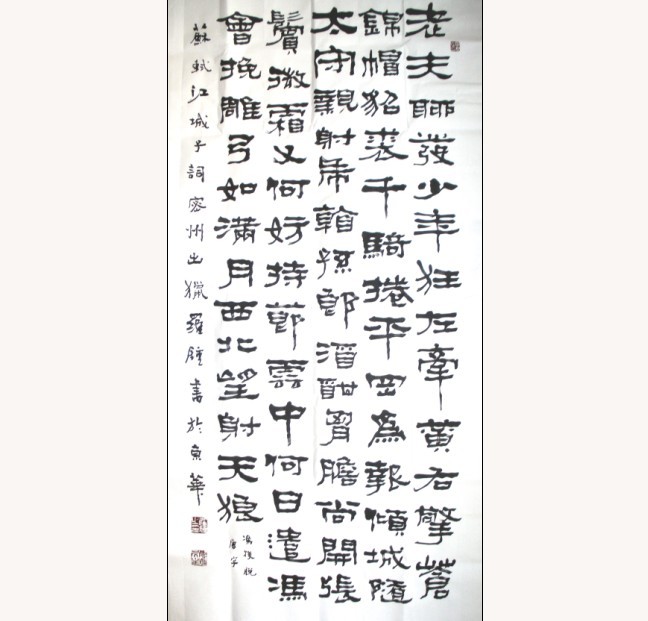 老夫聊發少年狂左牽黃右擎蒼
錦帽貂裘千騎捲平岡為報傾城隨
太守親射虎看孫郎酒酣胸膽尚開張
鬢微霜又何妨持節雲中何日遣馮
會挽雕弓如滿月西北望射天狼
馮後脫
唐字
蘇軾江城子詞密州出獵羅鍾書於京華